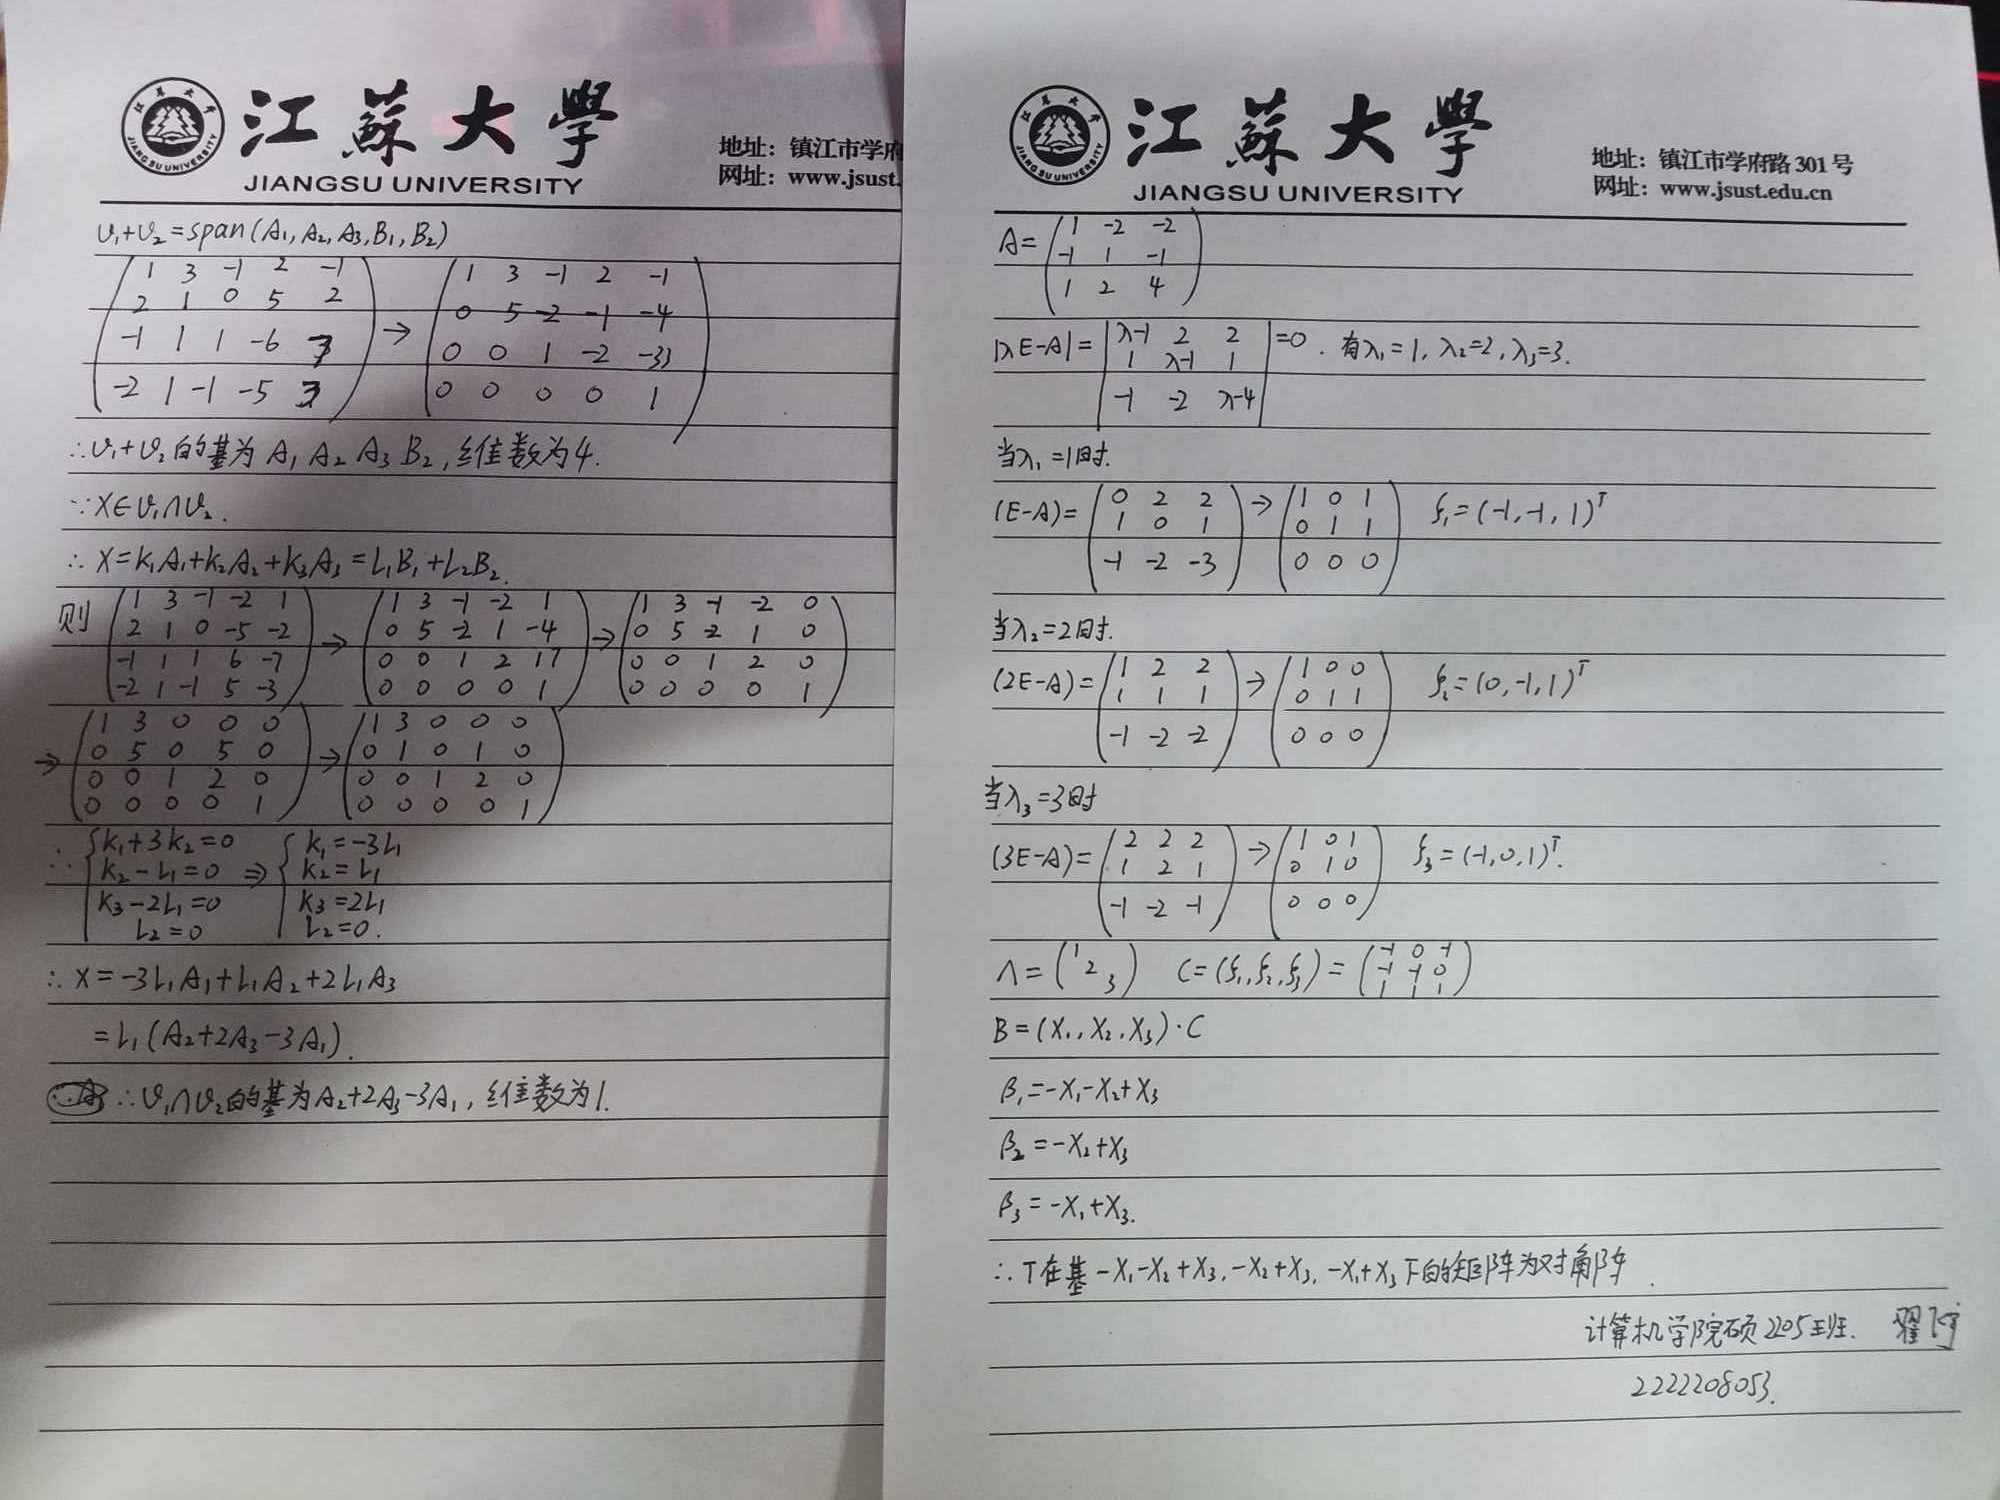 江蘇大學
JIANGSU UNIVERSITY
地址：镇江市学府
网址：www.jsust.
υ₁+υ₂=span(A₁,A₂,A₃,B₁,B₂)
1 3 -1 2 -1
2 1 0 5 2
-1 1 1 -6 7
-2 1 -1 -5 3
→
1 3 -1 2 -1
0 5 -2 -1 -4
0 0 1 -2 -33
0 0 0 0 1
∴υ₁+υ₂的基为 A₁ A₂ A₃ B₂,维数为4.
∵X∈υ₁∩υ₂.
∴ X=k₁A₁+k₂A₂+k₃A₃=L₁B₁+L₂B₂.
则
1 3 -1 -2 1
2 1 0 -5 -2
-1 1 1 6 -7
-2 1 -1 5 -3
→
1 3 -1 -2 1
0 5 -2 1 -4
0 0 1 2 17
0 0 0 0 1
→
1 3 -1 -2 0
0 5 -2 1 0
0 0 1 2 0
0 0 0 0 1
→
1 3 0 0 0
0 5 0 5 0
0 0 1 2 0
0 0 0 0 1
→
1 3 0 0 0
0 1 0 1 0
0 0 1 2 0
0 0 0 0 1
∴ k₁+3k₂=0 k₁=-3L₁
k₂-L₁=0 ⇒ k₂=L₁
k₃-2L₁=0 k₃=2L₁
L₂=0 L₂=0.
∴ X=-3L₁A₁+L₁A₂+2L₁A₃
=L₁(A₂+2A₃-3A₁).
∴υ₁∩υ₂的基为A₂+2A₃-3A₁,维数为1.
江蘇大學
JIANGSU UNIVERSITY
地址：镇江市学府路301号
网址：www.jsust.edu.cn
A=
1 -2 -2
-1 1 -1
1 2 4
|λE-A|=
λ-1 2 2
1 λ-1 1
-1 -2 λ-4
=0. 有λ₁=1, λ₂=2, λ₃=3.
当λ₁=1时.
(E-A)=
0 2 2
1 0 1
-1 -2 -3
→
1 0 1
0 1 1
0 0 0
ξ₁=(-1,-1,1)ᵀ
当λ₂=2时.
(2E-A)=
1 2 2
1 1 1
-1 -2 -2
→
1 0 0
0 1 1
0 0 0
ξ₂=(0,-1,1)ᵀ
当λ₃=3时
(3E-A)=
2 2 2
1 2 1
-1 -2 -1
→
1 0 1
0 1 0
0 0 0
ξ₃=(-1,0,1)ᵀ.
Λ=(1 2 3) C=(ξ₁,ξ₂,ξ₃)=
-1 0 -1
-1 -1 0
1 1 1
B=(X₁,X₂,X₃)·C
β₁=-X₁-X₂+X₃
β₂=-X₂+X₃
β₃=-X₁+X₃.
∴T在基-X₁-X₂+X₃,-X₂+X₃,-X₁+X₃下的矩阵为对角阵.
计算机学院硕2205班. 翟
2222208053.